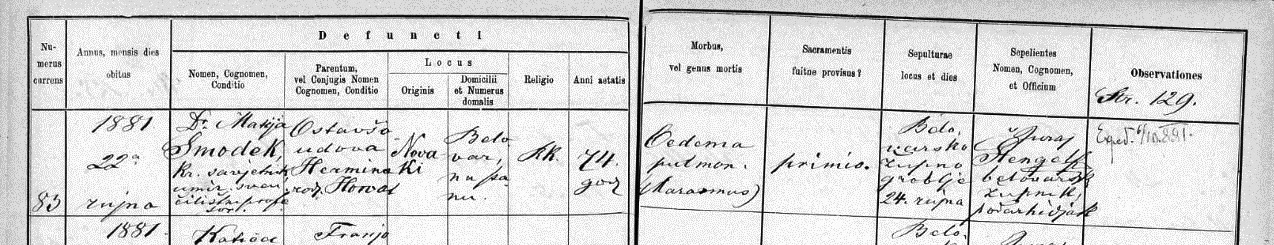 Defuncti
Numerus currens
Annus, mensis dies obitus
Nomen, Cognomen, Conditio
Parentum, vel Conjugis Nomen Cognomen, Conditio
Locus
Originis
Domicilii et Numerus domalis
Religio
Anni aetatis
Morbus, vel genus mortis
Sacramentis fuitne provisus?
Sepulturae locus et dies
Sepelientes Nomen, Cognomen, et Officium
Observationes
Str. 129.
83
1881
22a
rujna
Dr. Matija
Smodek,
kr. savjetnik
umir. sveu
čilištni profe
sor.
Ostavša
udova
Hermina
rodj. Horvat
Nova
Ki
Belo
var,
nu
RK.
74.
god
Oedema
pulmon.
(Marasmus)
primio.
Belo,
varsko
župno
groblje
24. rujna
Juraj
belovarski
župnik,
podarhidjak
1881.
Franjo
Belo
Juraj